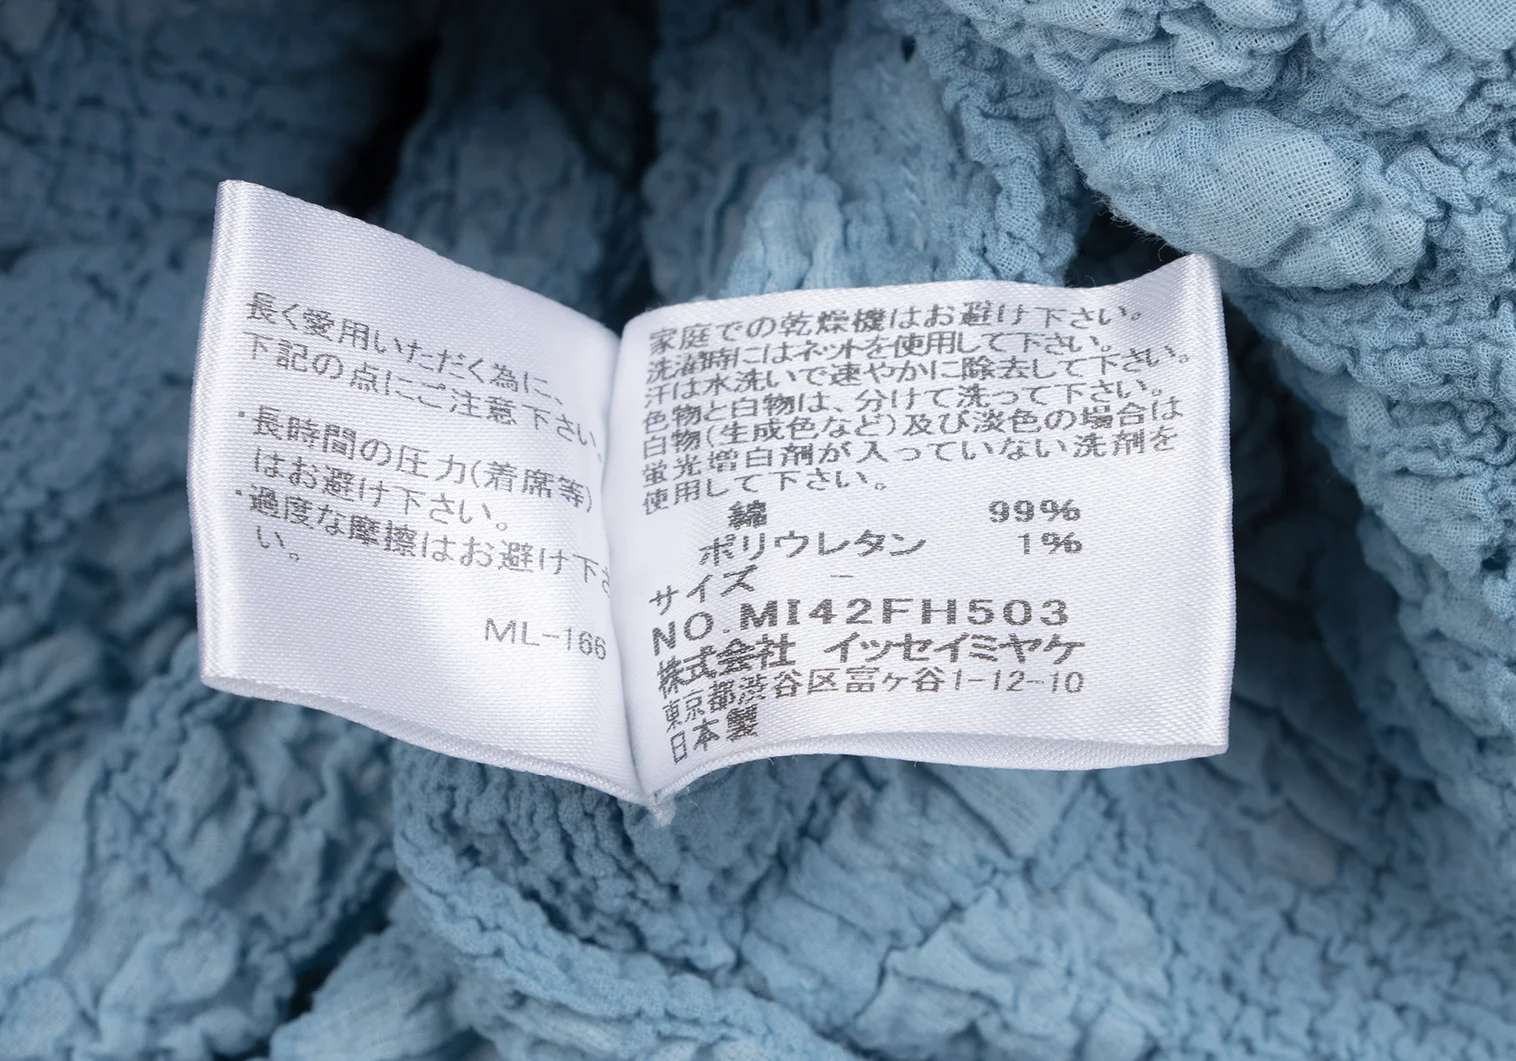 長く愛用いただく為に、
下記の点にご注意下さい。
・長時間の圧力(着席等)
はお避け下さい。
・過度な摩擦はお避け下さ
い。
ML-166
家庭での乾燥機はお避け下さい。
洗濯時にはネットを使用して下さい。
汗は水洗いで速やかに除去して下さい。
色物と白物は、分けて洗って下さい。
白物(生成色など)及び淡色の場合は
蛍光増白剤が入っていない洗剤を
使用して下さい。
綿 99%
ポリウレタン 1%
サイズ -
NO.MI42FH503
株式会社 イッセイミヤケ
東京都渋谷区富ヶ谷1-12-10
日本製